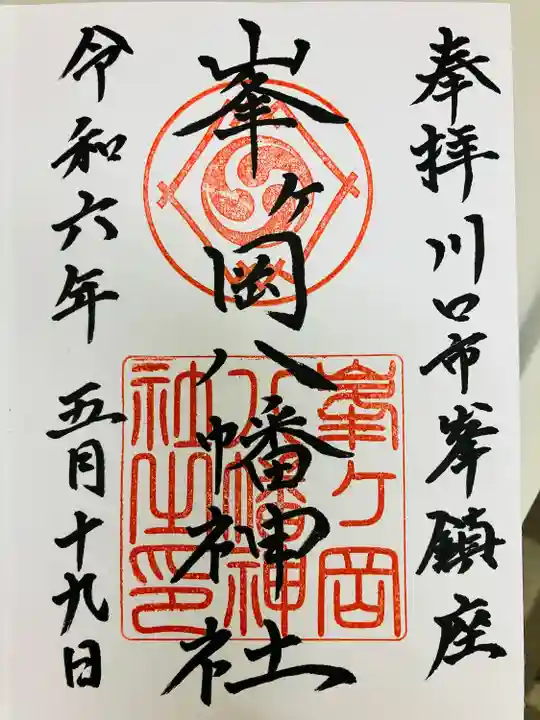 奉拝 川口市峯鎮座
峯ヶ岡八幡神社
令和六年 五月十九日
峯ヶ岡
八幡神
社之印